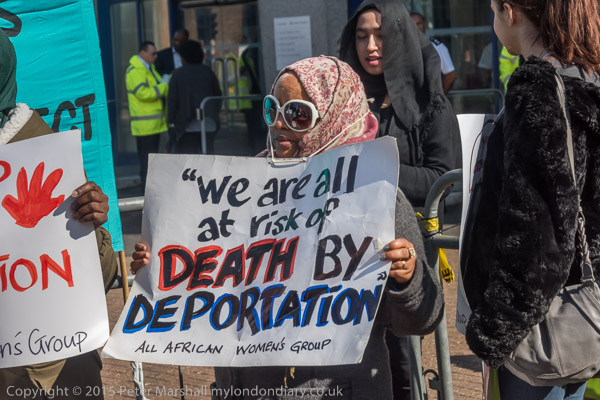 ECT
P
ION
n's Group
"We are all
at risk of
DEATH BY
DEPORTATION"
ALL AFRICAN WOMEN'S GROUP
Copyright © 2015 Peter Marshall mylondondiary.co.uk